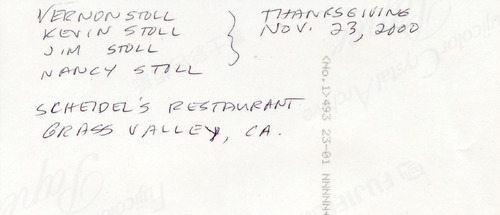 VERNON STOLL
KEVIN STOLL
JIM STOLL
NANCY STOLL
THANKSGIVING
NOV. 23, 2000
SCHEIDEL'S RESTAURANT
GRASS VALLEY, CA.
<No.1>493 23-01 NNNNN
Fujicolor Crystal Archive
FUJIFILM